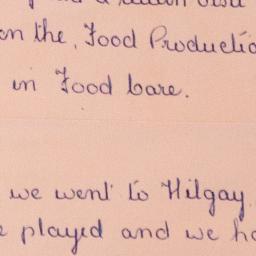 on the, Food Productio
in Food bare.
we went to Hilgay.
e played and we ha